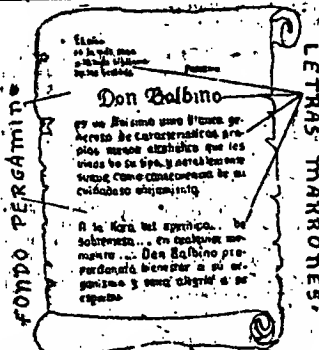 Don Balbino
es un finisimo vino blanco ge-
neroso de caracteristicas pro-
pias menos alcohólico que los
vinos de su tipo, y notablemente
suave como consecuencia de su
cuidadoso añejamiento.
A la hora del aperitivo... de
sobremesa... en cualquier mo-
mento... Don Balbino pro-
porcionará bienestar a su or-
ganismo y sana alegria a su
espiritu.
FONDO PERGAMINO
LETRAS MARRONES